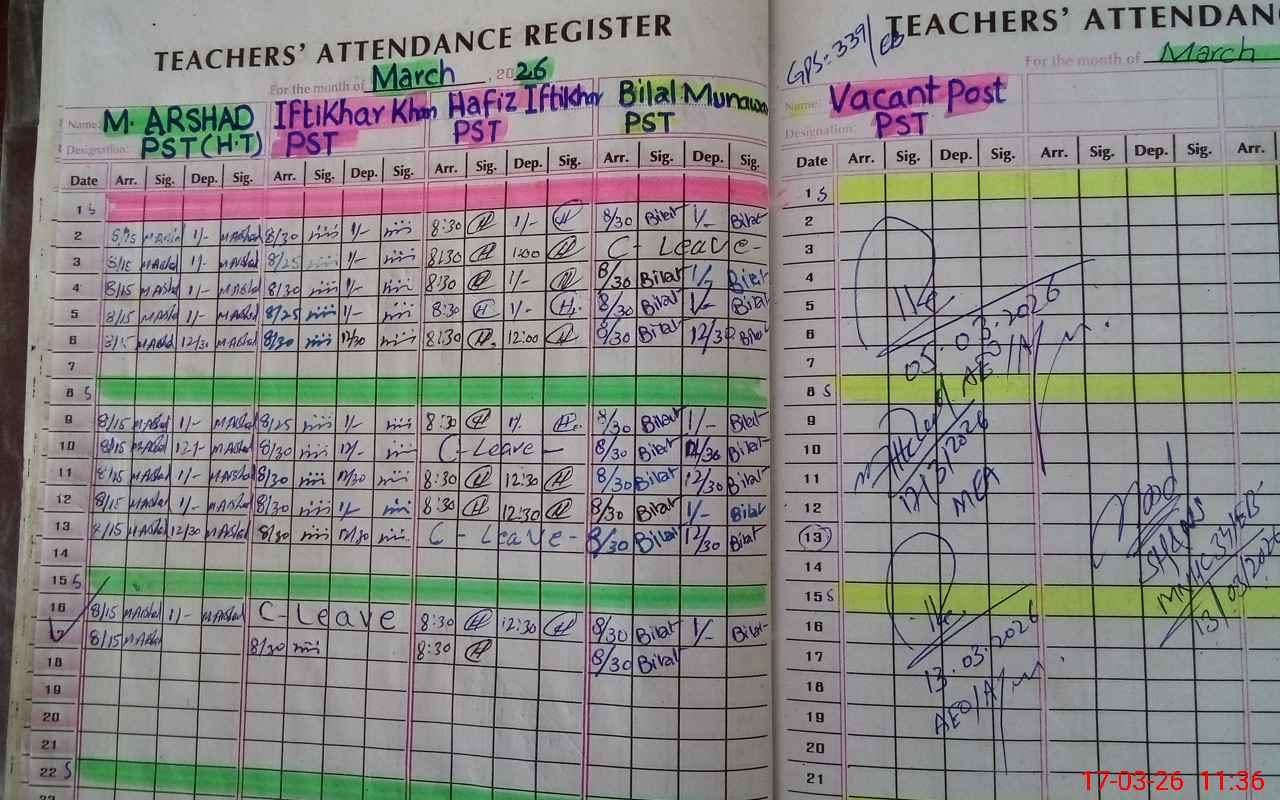 TEACHERS' ATTENDANCE REGISTER
For the month of March, 2026
Name: M. ARSHAD Iftikhar Khan Hafiz Iftikhar Bilal Munawar
Designation: PST(H.T) PST PST PST
Date Arr. Sig. Dep. Sig. Arr. Sig. Dep. Sig. Arr. Sig. Dep. Sig. Arr. Sig. Dep. Sig.
1 S
2 8/15 1/- M Arshad 8/30 1/- 8:30 H 1/- H 8/30 Bilal 1/- Bilal
3 8/15 M Arshad 1/- M Arshad 8/25 1/- 8:30 H 1:00 H C - Leave -
4 8/15 M Arshad 1/- M Arshad 8/30 1/- 8:30 H 1/- H 8/30 Bilal Bilal
5 8/15 M Arshad 1/- M Arshad 8/25 1/- 8:30 H 1/- H 8/30 Bilal 1/- Bilal
6 M Arshad 12/30 M Arshad 8/30 12/30 8:30 H 12:00 H 8/30 Bilal 12/30 Bilal
7
8 S
9 8/15 M Arshad 1/- M Arshad 8/25 1/- 8:30 H H 8/30 Bilal 1/- Bilal
10 8/15 M Arshad M Arshad 8/30 C - Leave - 8/30 Bilal 12/30 Bilal
11 8/15 M Arshad 1/- M Arshad 8/30 12/30 8:30 H 12:30 H 8/30 Bilal 12/30 Bilal
12 8/15 M Arshad 1/- M Arshad 8/30 1/- 8:30 H 12:30 H 8/30 Bilal 1/- Bilal
13 8/15 M Arshad 12/30 M Arshad 8/30 12/30 C - Leave - 8/30 Bilal 12/30 Bilal
14
15 S
16 8/15 M Arshad 1/- M Arshad C - Leave 8:30 H 12:30 H 8/30 Bilal 1/- Bilal
8/15 M Arshad 8/30 8:30 H 8/30 Bilal
18
19
20
21
22 S
GPS: 339/EB
TEACHERS' ATTENDAN
For the month of March
Name: Vacant Post
Designation: PST
Date Arr. Sig. Dep. Sig. Arr. Sig. Dep. Sig. Arr.
1 S
2
3
4
5
6
7
8 S
9
10
11
12
13
14
15 S
16
17
18
19
20
21
05.03.2026
AEO/A/M
12/3/2026
MEA
13/03/2026
13.03.2026
AEO/A/M
17-03-26 11:36